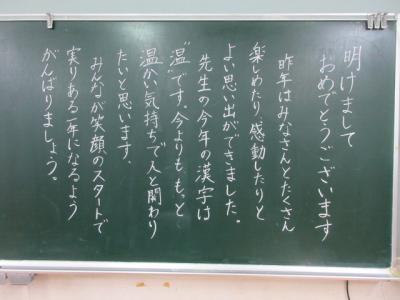 明けまして
おめでとうございます
昨年はみなさんとたくさん
楽しめたり、感動したりと
よい思い出ができました。
先生の今年の漢字は
"温"です。今よりももっと
温かい気持ちで人と関わり
たいと思います。
みんなが笑顔のスタートで
実りある一年になるよう
がんばりましょう。